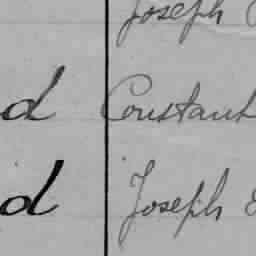 Joseph
d Constant
d Joseph